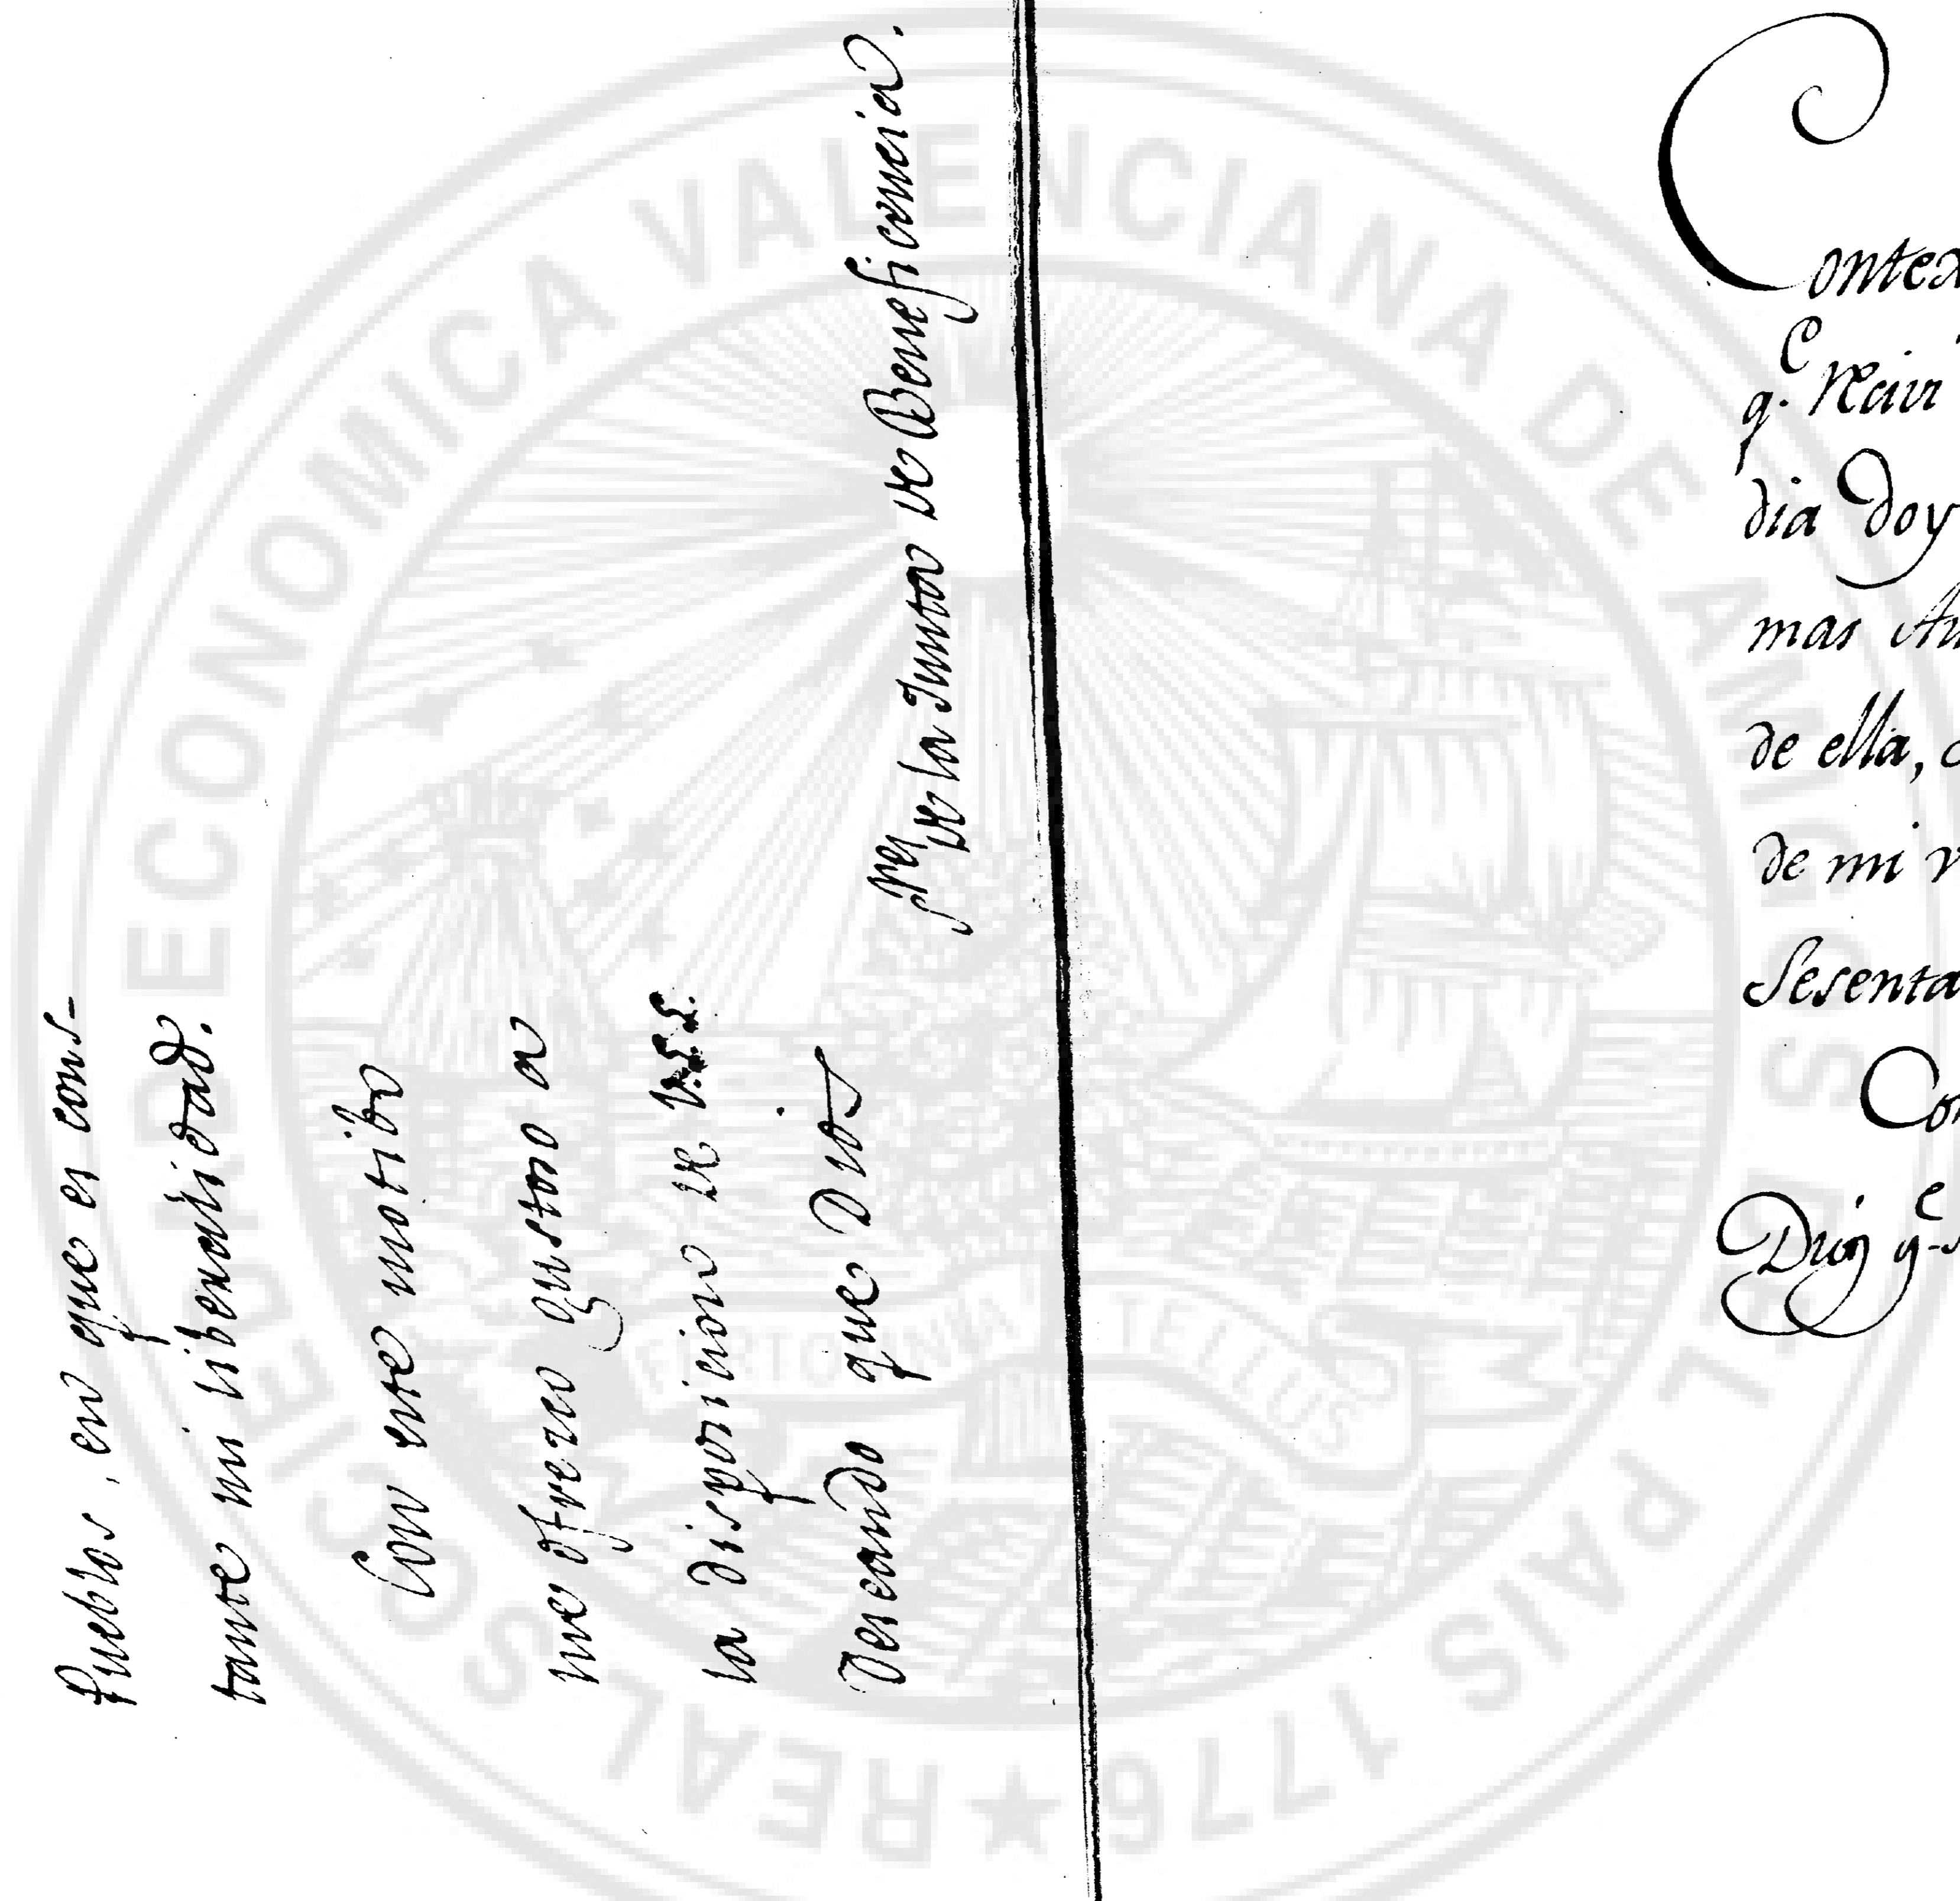 Pueblos, en que es cons-
tante mi liberalidad.
Con este motibo
me ofrezco gustoso a
la disposicion de V.S.S.
Deseando que Dios
sres de la Junta de Beneficencia.
q.e
dia doy
mas
de ella,
de mi
Sesenta
REAL SOCIEDAD ECONOMICA VALENCIANA DE AMIGOS DEL PAIS 1776